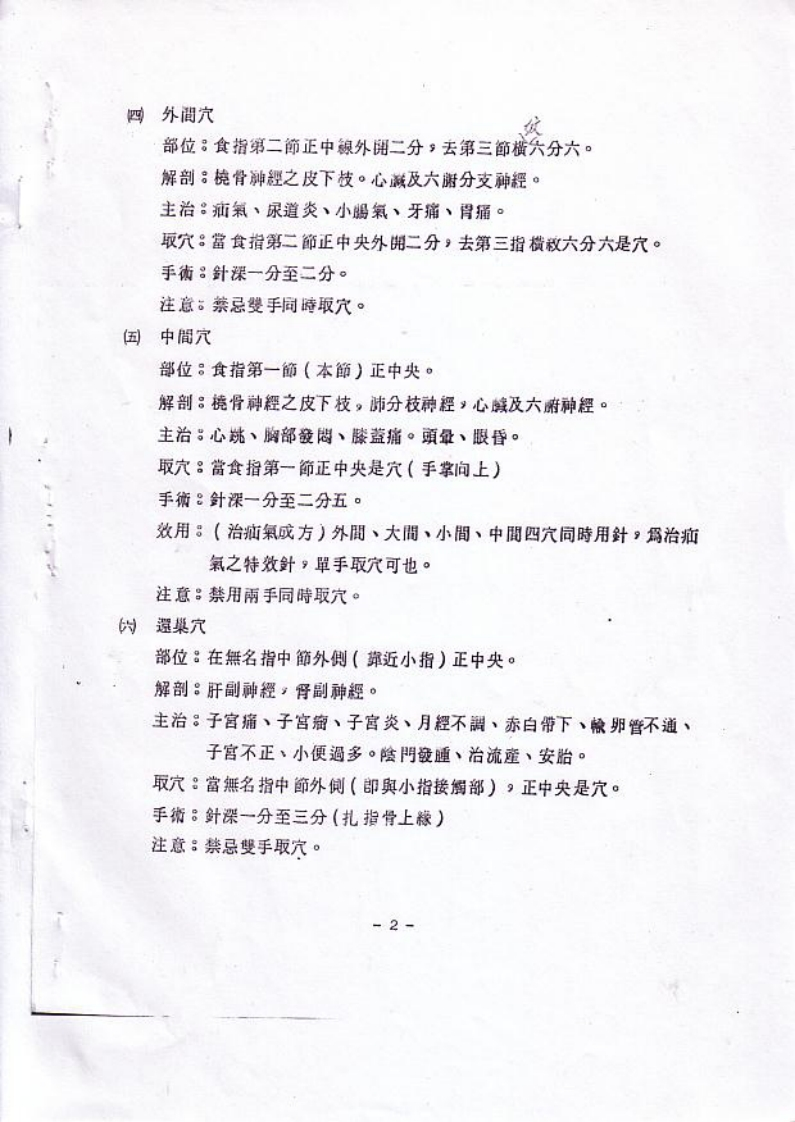 ㈣ 外間穴
部位：食指第二節正中線外開二分，去第三節橫紋六分六。
解剖：橈骨神經之皮下枝。心臟及六腑分支神經。
主治：疝氣、尿道炎、小腸氣、牙痛、胃痛。
取穴：當食指第二節正中央外開二分，去第三指橫紋六分六是穴。
手術：針深一分至二分。
注意：禁忌雙手同時取穴。
㈤ 中間穴
部位：食指第一節（本節）正中央。
解剖：橈骨神經之皮下枝，肺分枝神經，心臟及六腑神經。
主治：心跳、胸部發悶、膝蓋痛。頭暈、眼昏。
取穴：當食指第一節正中央是穴（手掌向上）
手術：針深一分至二分五。
效用：（治疝氣成方）外間、大間、小間、中間四穴同時用針，為治疝
氣之特效針，單手取穴可也。
注意：禁用兩手同時取穴。
㈥ 還巢穴
部位：在無名指中節外側（靠近小指）正中央。
解剖：肝副神經，腎副神經。
主治：子宮痛、子宮瘤、子宮炎、月經不調、赤白帶下、輸卵管不通、
子宮不正、小便過多。陰門發腫、治流產、安胎。
取穴：當無名指中節外側（即與小指接觸部），正中央是穴。
手術：針深一分至三分（扎指骨上緣）
注意：禁忌雙手取穴。
- 2 -